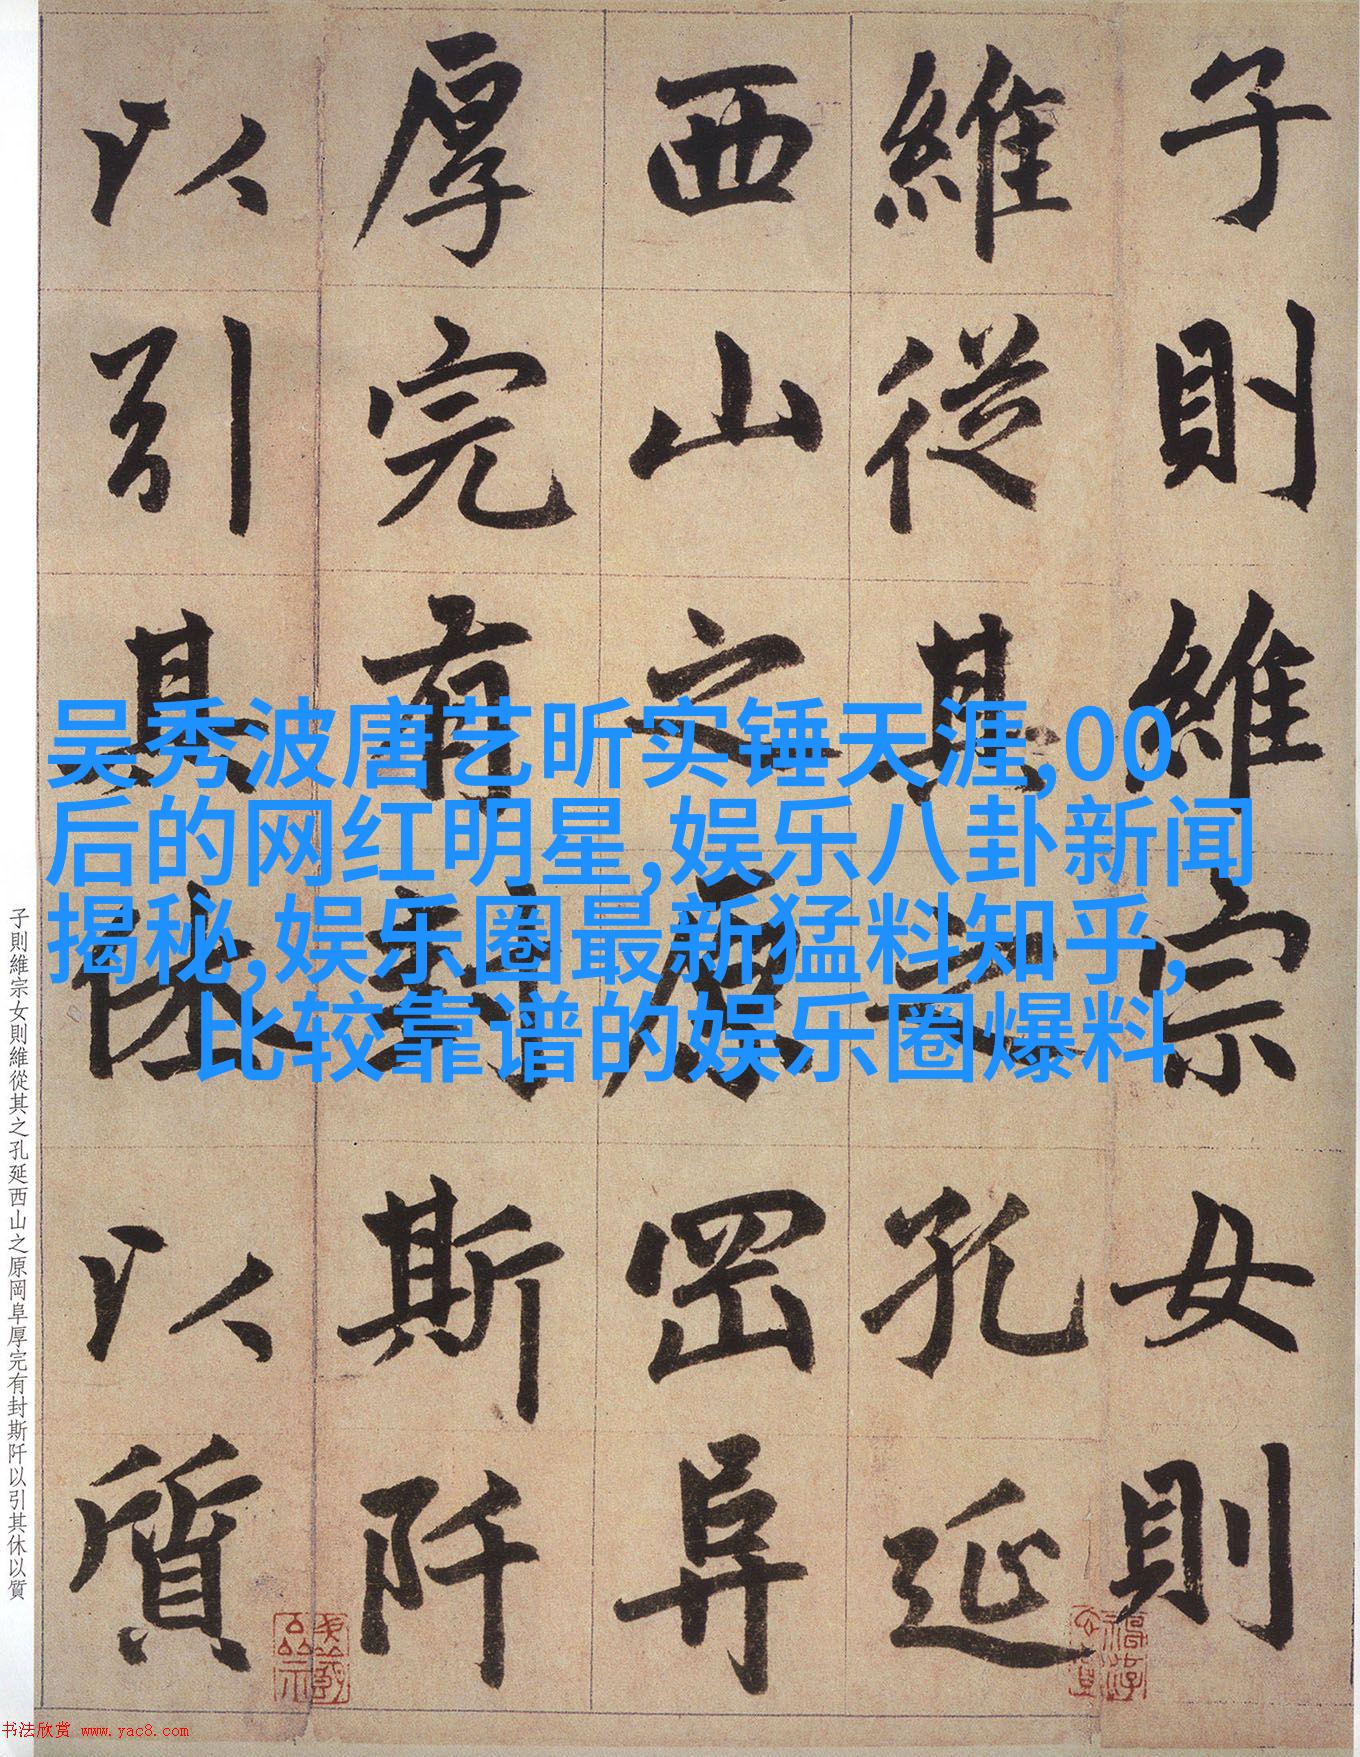 子則維宗女則
維從其之孔延
西山之原岡阜
厚完有封斯阡
以引其休以質
吴秀波唐艺昕实锤天涯,00
后的网红明星,娱乐八卦新闻
揭秘,娱乐圈最新猛料知乎,
比较靠谱的娱乐圈爆料
子則維宗女則維從其之孔延西山之原岡阜厚完有封斯阡以引其休以質
书法欣赏 www.yac8.com